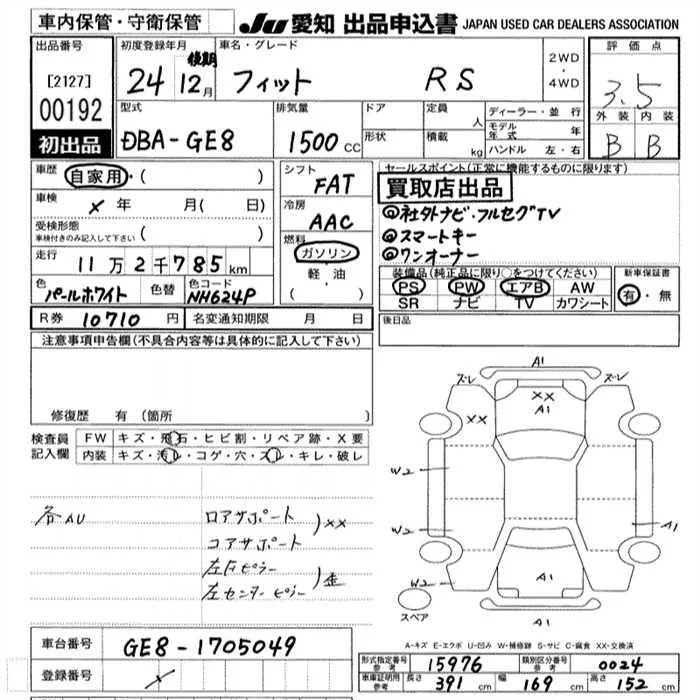 車内保管・守衛保管 JU 愛知 出品申込書 JAPAN USED CAR DEALERS ASSOCIATION
出品番号 初度登録年月 後期 車名・グレード 2WD・4WD 評価点
[2127] 24 12月 フィット RS 3.5
00192 型式 排気量 ドア 定員 人 ディーラー・並行 外装 内装
初出品 DBA-GE8 1500cc 形状 積載 kg モデル年式 年 B B
ハンドル 左・右
車歴 自家用・( ) シフト FAT セールスポイント(正常に機能するものに限ります)
車検 × 年 月( 日) 冷房 AAC 買取店出品
受検形態 車検付きのみ記入して下さい ( ) 燃料 ガソリン ◎社外ナビ・フルセグTV
走行 11万2千785km 軽・油 ◎スマートキー
( ) ◎ワンオーナー
色 パールホワイト 色替 色コード NH624P 装備品(純正品に限り○をつけてください) 新車保証書
PS PW エアB AW 有・無
SR ナビ TV カワシート
R券 10710円 名変通知期限 月 日 後日品
注意事項申告欄(不具合内容等は具体的に記入して下さい)
修復歴 有(箇所 )
検査員記入欄 FW キズ・飛石・ヒビ割・リペア跡・X要
内装 キズ・汚レ・コゲ・穴・スレ・キレ・破レ
各AU ロアサポート
コアサポート )××
左Fピラー
左センターピラー )歪
A1
ズレ ズレ
×× ×× A1
W2
W2 A1
W2 A1
スペア A1
A-キズ E-エクボ U-凹み W-補修跡 S-サビ C-腐食 XX-交換済
車台番号 GE8-1705049
登録番号 ×
形式指定番号 参考 15976 類別区分番号 参考 0024
車庫証明用 参考 長さ 391cm 幅 169cm 高さ 152cm